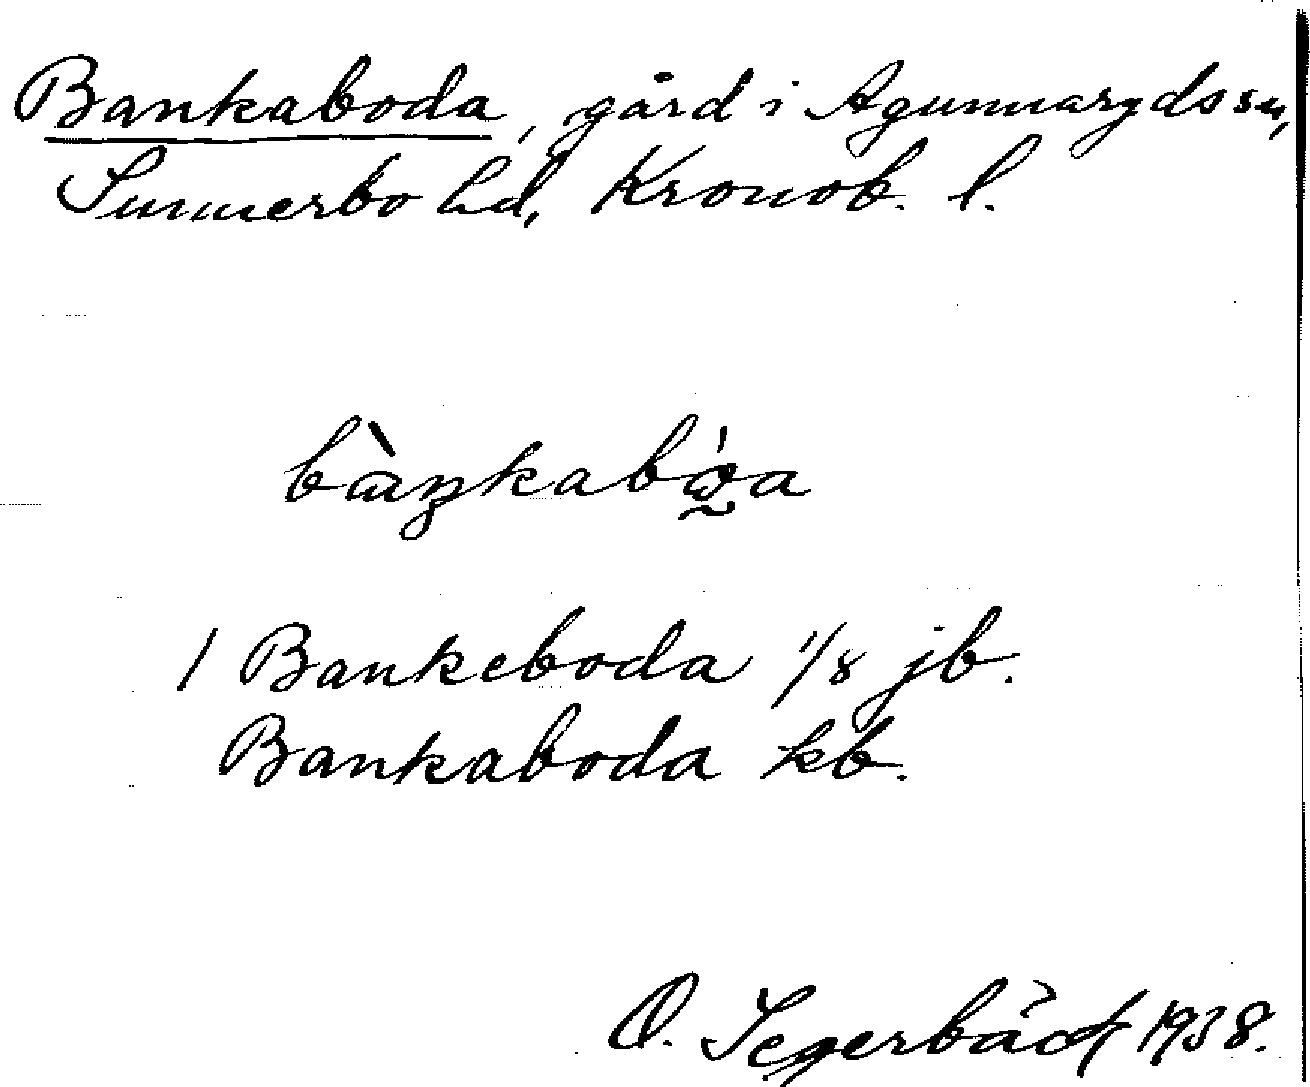 Bankaboda, gård i Agunnarydssn,
Sunnerbo hd, Kronob. l.
bàŋkabǫ̀a
1 Bankeboda 1/8 jb.
Bankaboda kb.
O. Segerbäck 1938.